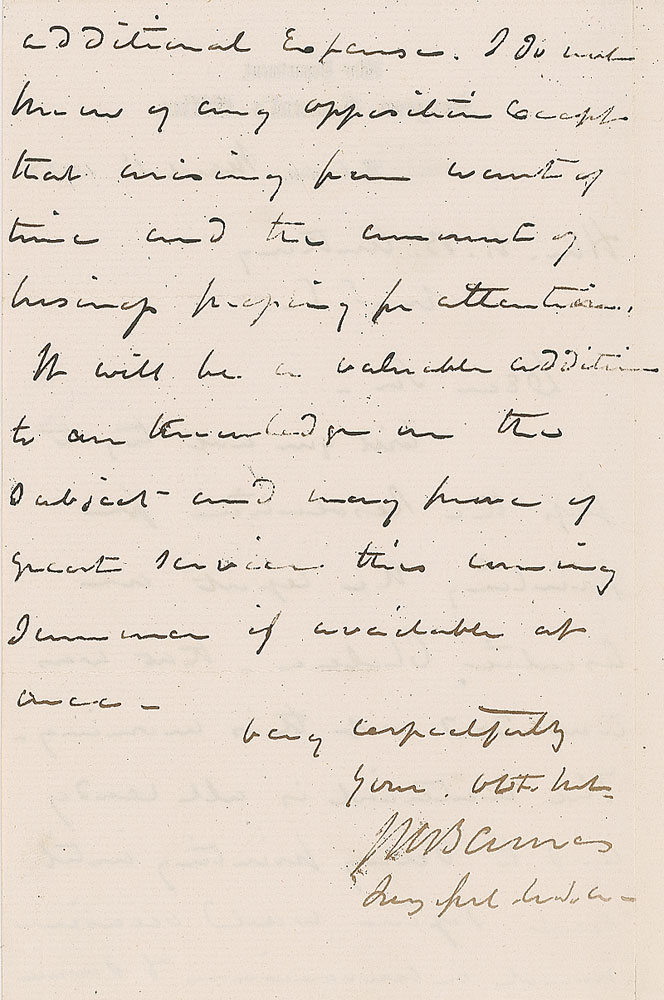 additional Expense. I do not
know of any opposition Except
that arising from want of
time and the amount of
business preparing for attention.
It will be a valuable addition
to our knowledge on the
subject and may prove of
great service this coming
Summer if available at
once –
Very respectfully
Your. Obt.
JKBarnes
Surg Genl U.S.A –